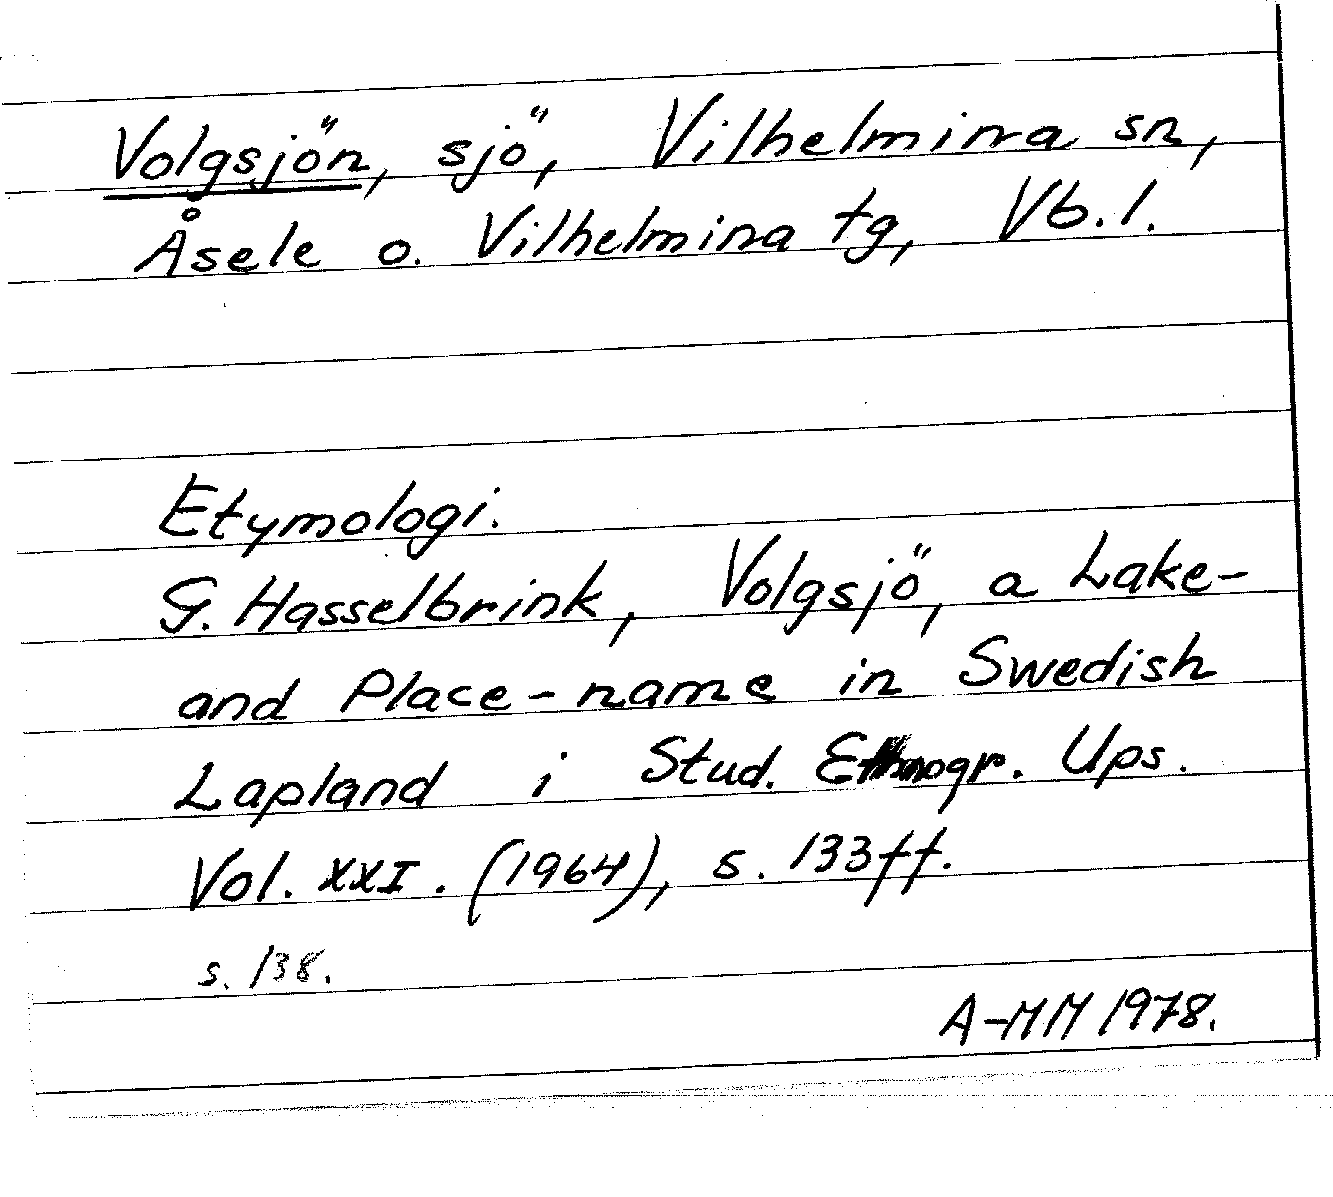 Volgsjön, sjö, Vilhelmina sn,
Åsele o. Vilhelmina tg, Vb. l.
Etymologi.
G. Hasselbrink, Volgsjö, a Lake-
and Place-name in Swedish
Lapland i Stud. Ethnogr. Ups.
Vol. XXI. (1964), s. 133ff.
s. 138.
A-MM 1978.